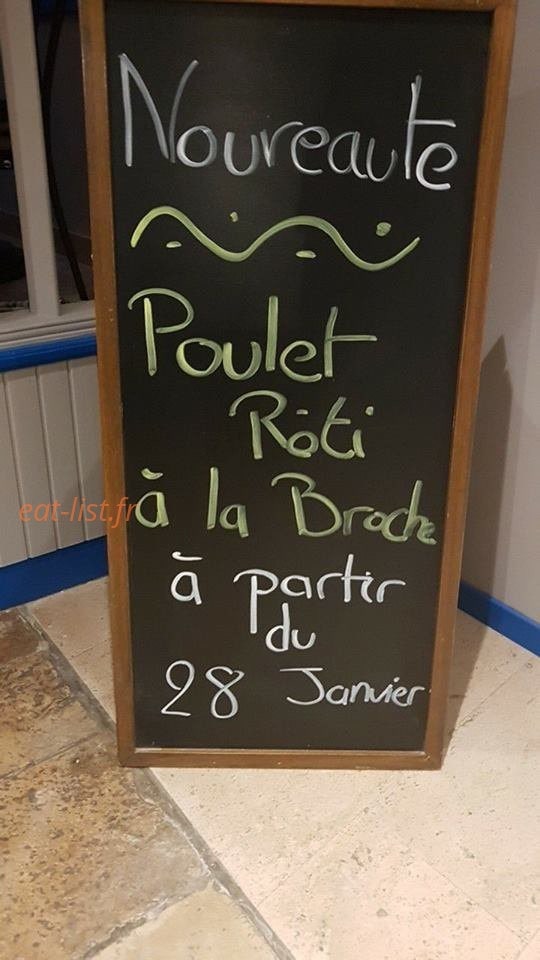 Nouveaute
Poulet
Rôti
à la Broche
à partir
du
28 Janvier
eat-list.fr